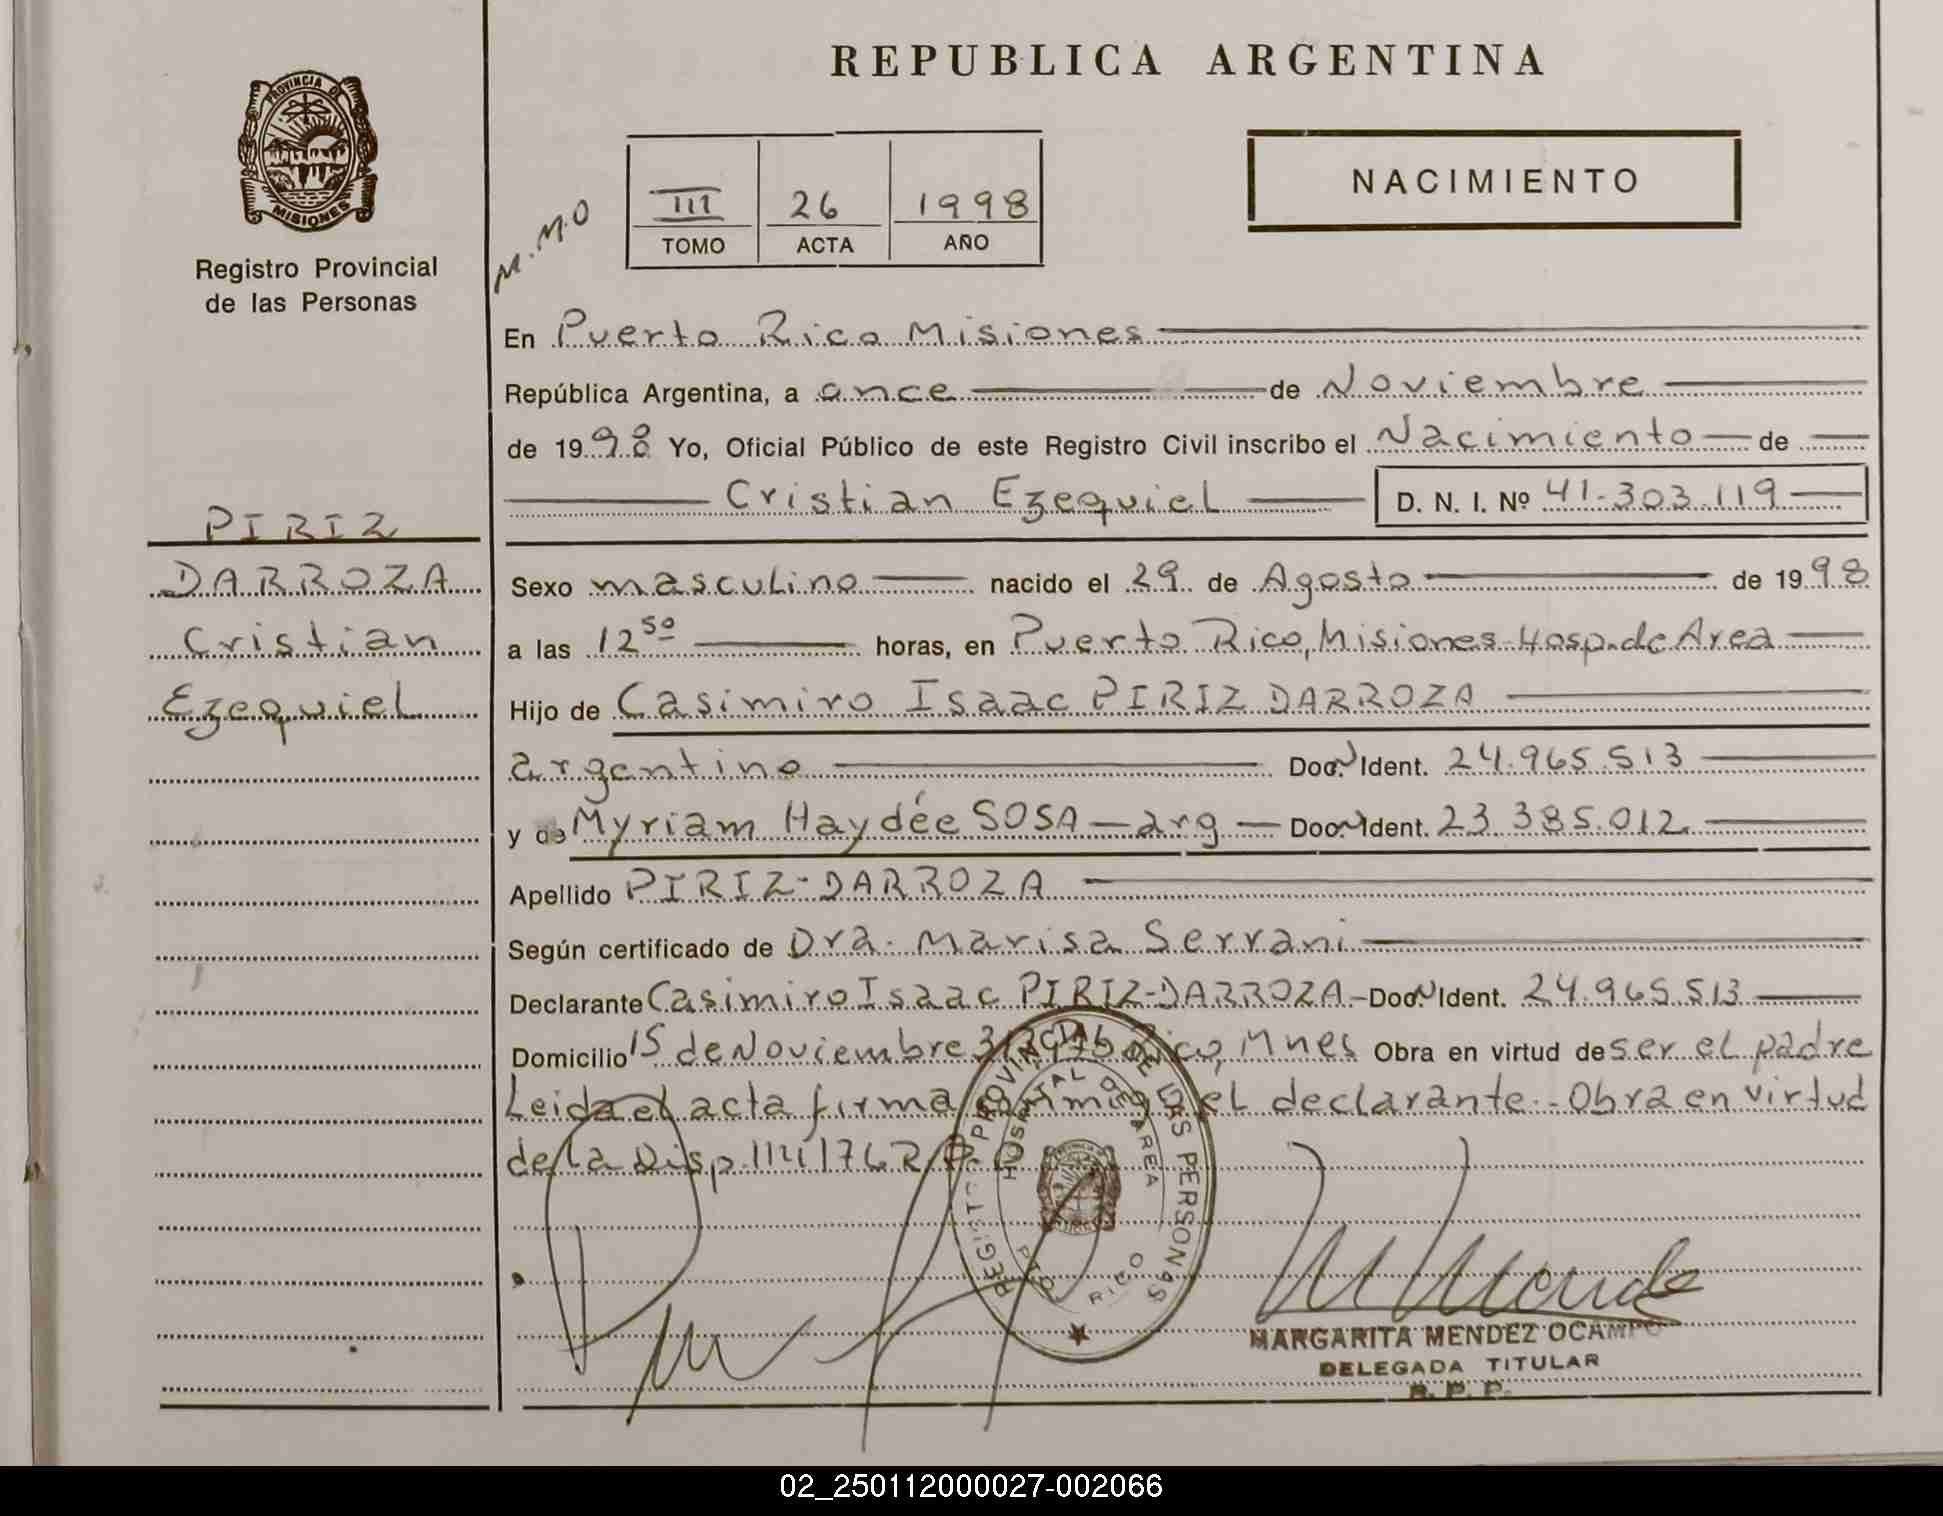 REPUBLICA ARGENTINA
PROVINCIA DE
MISIONES
Registro Provincial
de las Personas
M.M.O
III 26 1998
TOMO ACTA AÑO
NACIMIENTO
En Puerto Rico Misiones
República Argentina, a once de Noviembre
de 1998 Yo, Oficial Público de este Registro Civil inscribo el Nacimiento de
Cristian Ezequiel D. N. I. Nº 41.303.119
PIRIZ
DARROZA
Cristian
Ezequiel
Sexo masculino nacido el 29 de Agosto de 1998
a las 12 50 horas, en Puerto Rico, Misiones-Hosp. de Area
Hijo de Casimiro Isaac PIRIZ DARROZA
argentino Doc. N Ident. 24.965.513
y de Myriam Haydée SOSA - arg - Doc. N Ident. 23.385.012
Apellido PIRIZ-DARROZA
Según certificado de Dra. Marisa Serrani
Declarante Casimiro Isaac PIRIZ-DARROZA - Doc. N Ident. 24.965.513
Domicilio 15 de Noviembre Rico, Mnes Obra en virtud de ser el padre
Leida el acta firma conmigo el declarante.- Obra en virtud
de la Disp.
REGISTRO PROVINCIAL DE LAS PERSONAS
HOSPITAL DE AREA
PTO. RICO
MARGARITA MENDEZ OCAMPO
DELEGADA TITULAR
R. P. P.
02_250112000027-002066